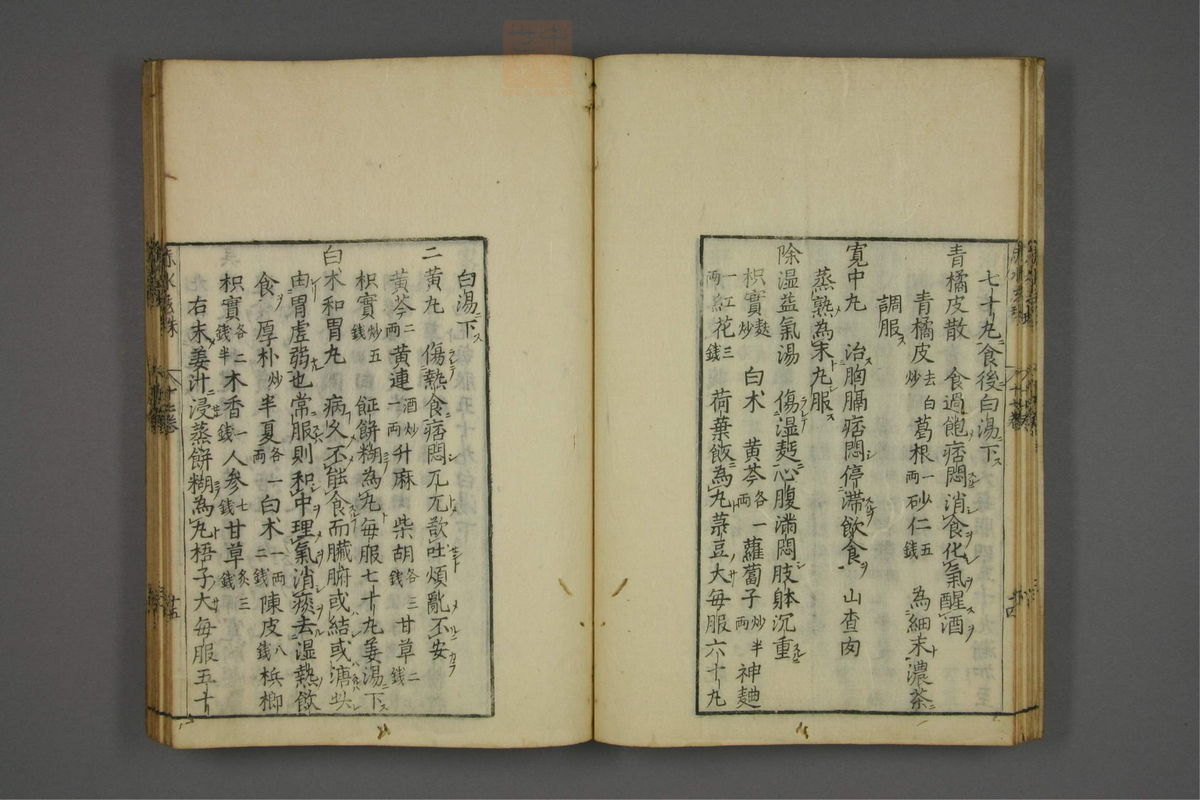 七十丸食後白湯下
青橘皮散 食過飽痞悶消食化氣醒酒
青橘皮去白炒 葛根一両 砂仁五錢 為細末濃茶
調服
寛中丸 治胸膈痞悶停滞飲食 山査肉
蒸熟為末丸服
除湿益氣湯 傷湿麪心腹滿悶肢躰沉重
枳實麩炒 白朮 黄芩各一両 蘿蔔子炒半両 神麯
一両 紅花三錢 荷葉飯為丸菉豆大毎服六十丸
白湯下
二黄丸 傷熱食痞悶兀兀欲吐煩亂不安
黄芩二両 黄連酒炒一両 升麻 柴胡各三錢 甘草二錢
枳實炒五錢 䭔餅糊為丸毎服七十丸姜湯下
白朮和胃丸 病久不能食而臓腑或結或溏此
由胃虚弱也常服則和中理氣消痰去湿熱飲
食 厚朴炒 半夏各一両 白朮一両二錢 陳皮八錢 梹榔
枳實各二錢半 木香一錢 人参七錢 甘草炙三錢
右末姜汁浸蒸餅糊為丸梧子大毎服五十